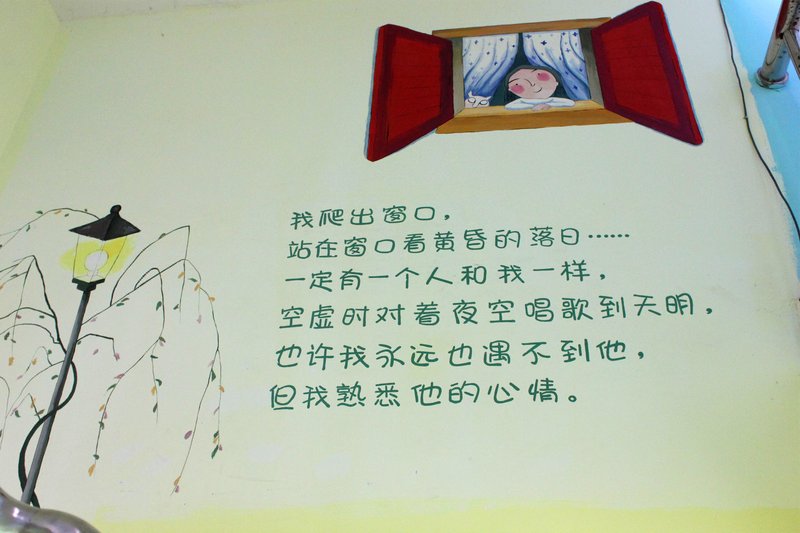 我爬出窗口，
站在窗口看黄昏的落日……
一定有一个人和我一样，
空虚时对着夜空唱歌到天明，
也许我永远也遇不到他，
但我熟悉他的心情。